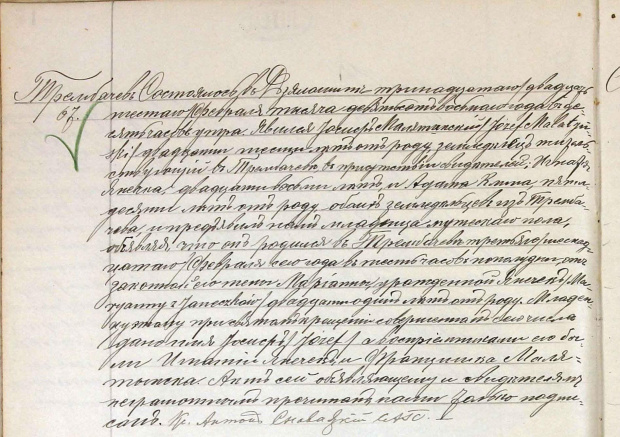 Трембачевъ Состоялось въ Дзялошинѣ тринадцатаго/двадцать
67. шестаго/Февраля тысяча девятьсотъ восьмаго года въ де-
сять часовъ утра. Явился Іосифъ Малятынскій/Józef Małatyń-
ski/двадцати шести лѣтъ отъ роду, земледѣлецъ жительст-
вующій въ Трембачевѣ въ присутствіи свидѣтелей, Игнатія
Янечка, двадцати восьми лѣтъ и Адама Клина пяти-
десяти лѣтъ отъ роду обоихъ земледѣльцевъ изъ Тремба-
чева, и предъявилъ намъ младенца мужескаго пола,
объявляя, что онъ родился въ Трембачевѣ третьяго/шестнад-
цатаго/Февраля сего года въ шесть часовъ пополудни, отъ
законной его жены Маріанны, урожденной Янечекъ/Ma-
ryanny z Janeczków/двадцати одинъ лѣтъ отъ роду. Младен-
цу этому при святомъ крещеніи совершенномъ сего числа
дано имя Іосифъ/Józef/а воспріемниками его бы-
ли Игнатій Янечекъ и Францишка Маля-
тынска. Актъ сей объявляющему и свидѣтелямъ
неграмотнымъ прочитанъ, нами только подпи-
санъ. Кс. Антоній